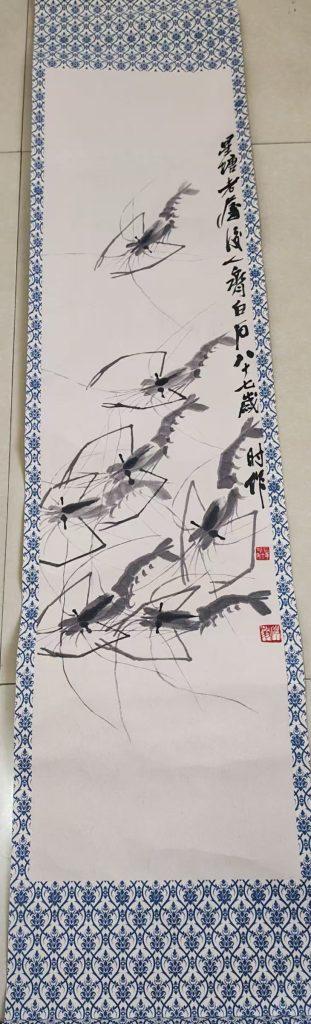 星塘老屋后人齐白石八十七岁
时作